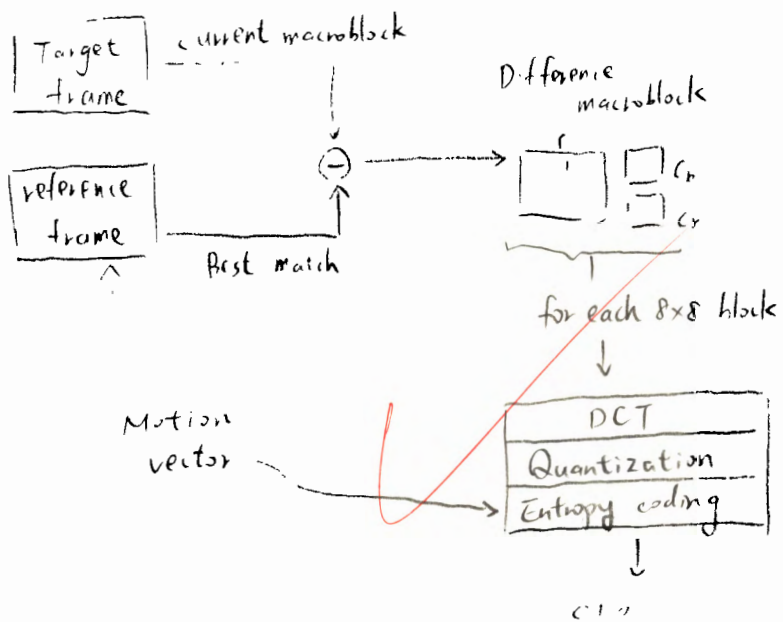 Target
frame
current macroblock
Difference
macroblock
Cr
reference
frame
Best match
for each 8×8 block
Motion
vector
DCT
Quantization
Entropy coding